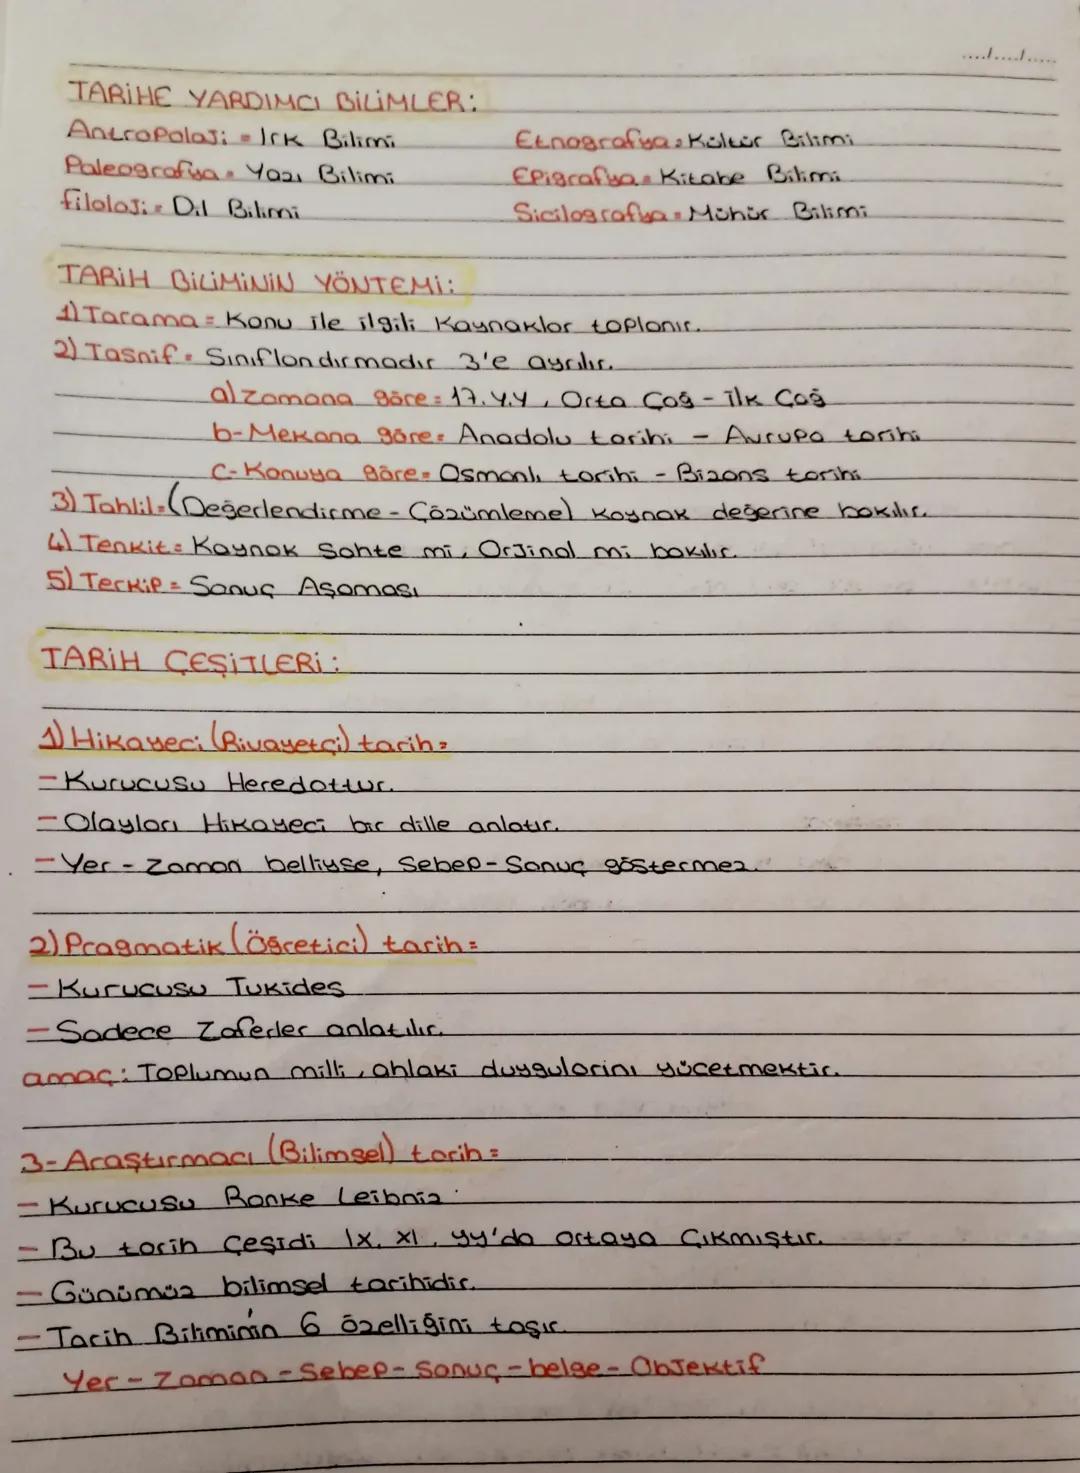 ..../..../.....
TARİHE YARDIMCI BİLİMLER:
Antropoloji = Irk Bilimi
Etnografya = Kültür Bilimi
Paleografya = Yazı Bilimi
Epigrafya = Kitabe Bilimi
Filoloji = Dil Bilimi
Sicilografya = Mühür Bilimi
TARİH BİLİMİNİN YÖNTEMİ:
1) Tarama = Konu ile ilgili Kaynaklar toplanır.
2) Tasnif = Sınıflandırmadır 3'e ayrılır.
a) Zamana göre = 17.Y.Y, Orta Çağ - İlk Çağ
b- Mekana göre = Anadolu tarihi - Avrupa tarihi
C- Konuya göre = Osmanlı tarihi - Bizans tarihi
3) Tahlil = (Değerlendirme - Çözümleme) Kaynak değerine bakılır.
4) Tenkit = Kaynak Sahte mi, Orjinal mi bakılır.
5) Terkip = Sonuç Aşaması
TARİH ÇEŞİTLERİ:
1) Hikayeci (Rivayetçi) tarih =
- Kurucusu Heredottur.
- Olayları Hikayeci bir dille anlatır.
- Yer - Zaman belliyse, Sebep - Sonuç göstermez.
2) Pragmatik (Öğretici) tarih =
- Kurucusu Tukides
- Sadece Zaferler anlatılır.
amaç: Toplumun milli, ahlaki duygularını yücetmektir.
3- Araştırmacı (Bilimsel) tarih =
- Kurucusu Ranke Leibniz
- Bu tarih Çeşidi IX. XI. yy'da ortaya Çıkmıştır.
- Günümüz bilimsel tarihidir.
- Tarih Biliminin 6 özelliğini taşır.
Yer - Zaman - Sebep - Sonuç - belge - Objektif